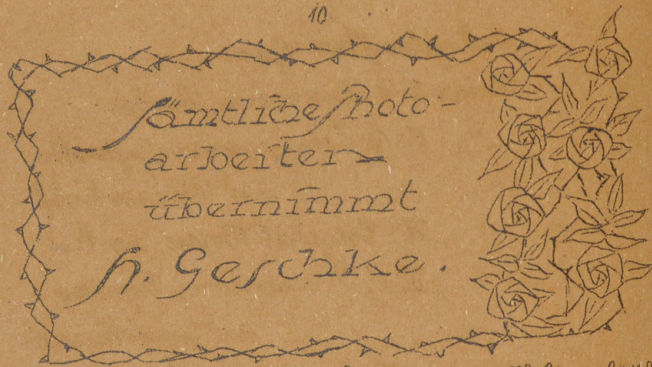 10
Sämtliche Photo-
arbeiten
übernimmt
H. Geschke.